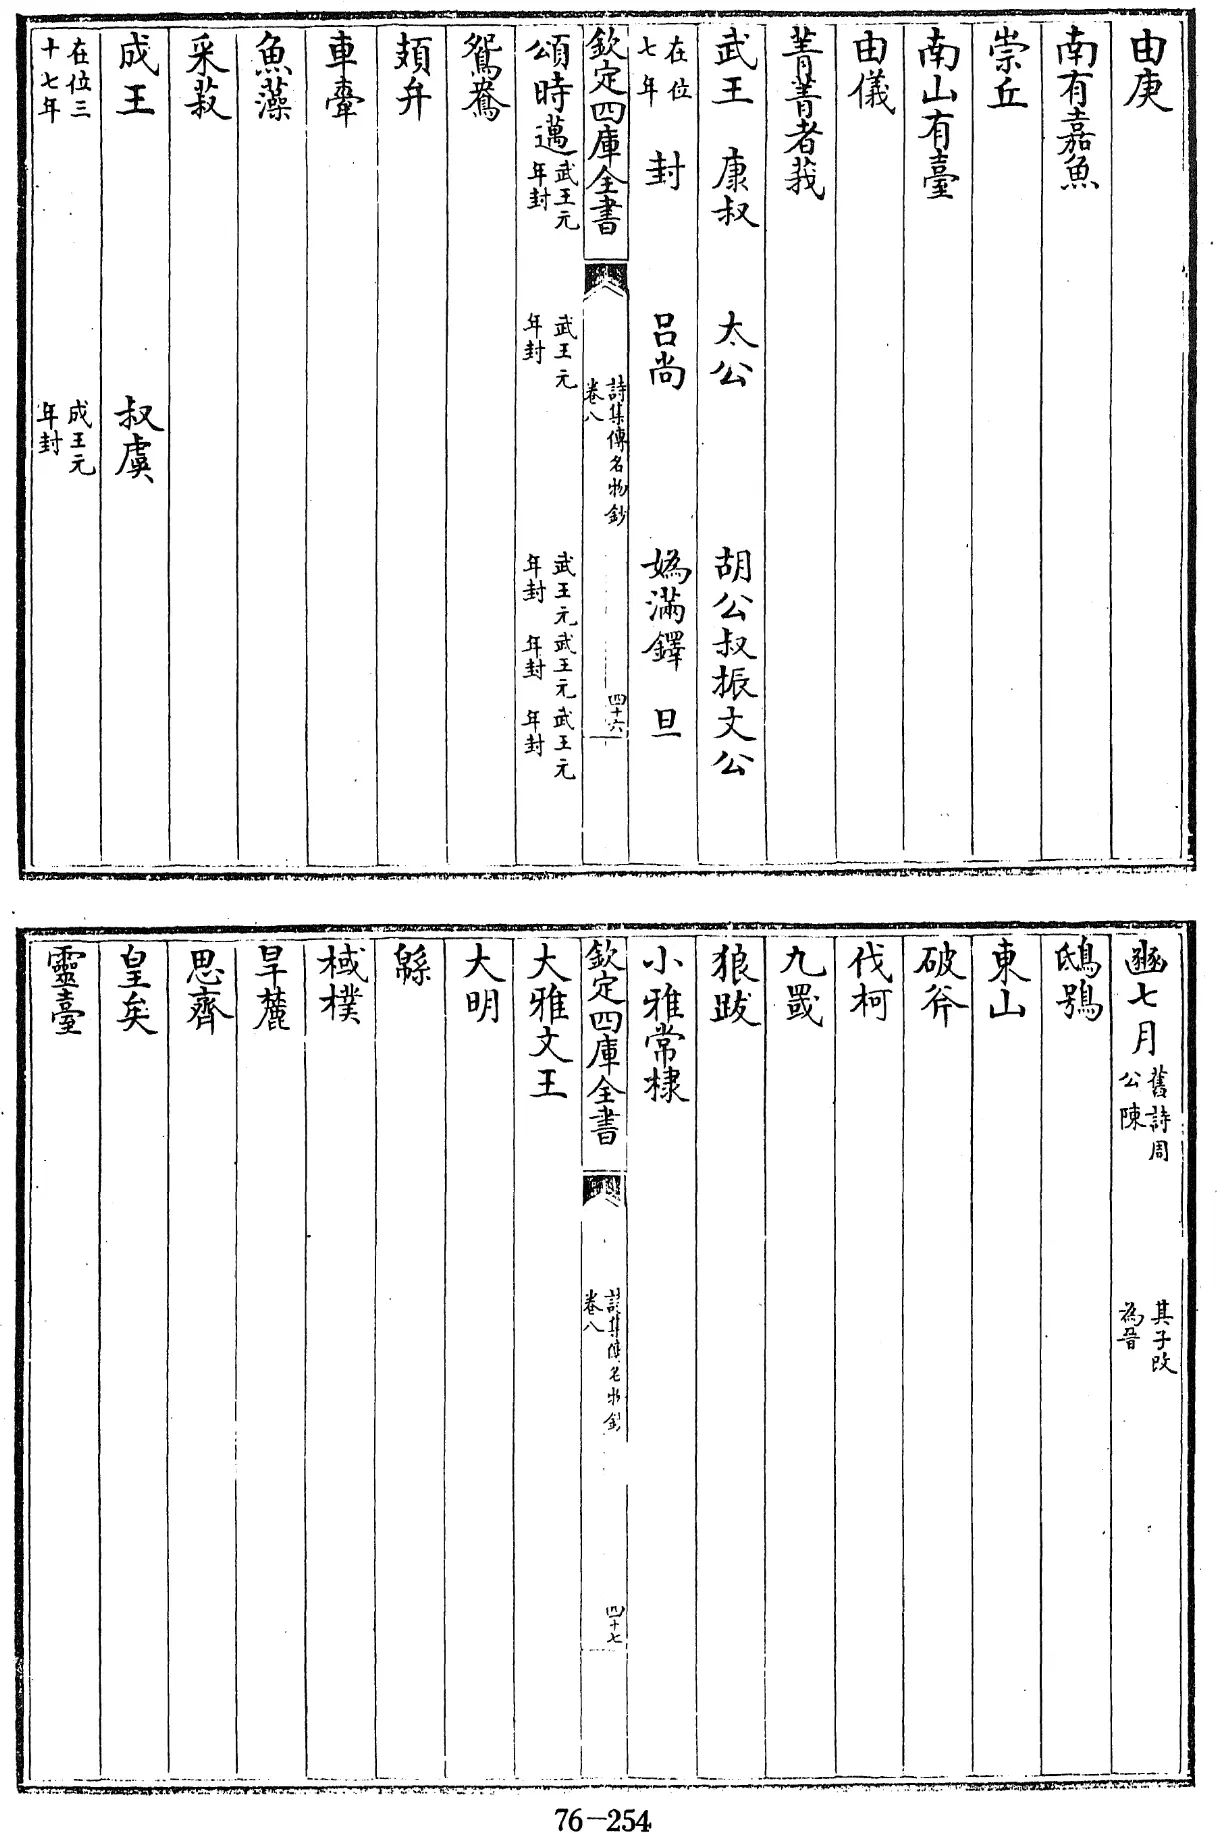 由庚
南有嘉魚
崇丘
南山有臺
由儀
菁菁者莪
武王 康叔 太公 胡公叔振文公
在位七年 封 呂尚 媯滿鐸 旦
欽定四庫全書 詩集傳名物鈔卷八 四十六
頌時邁 武王元年封 武王元年封 武王元年封 武王元年封 武王元年封
鴛鴦
頍弁
車舝
魚藻
采菽
成王 叔虞
在位三十七年 成王元年封
豳七月 舊詩周公陳 其子改為晉
鴟鴞
東山
破斧
伐柯
九罭
狼跋
小雅常棣
欽定四庫全書 詩集傳名物鈔卷八 四十七
大雅文王
大明
緜
棫樸
旱麓
思齊
皇矣
靈臺
76-254